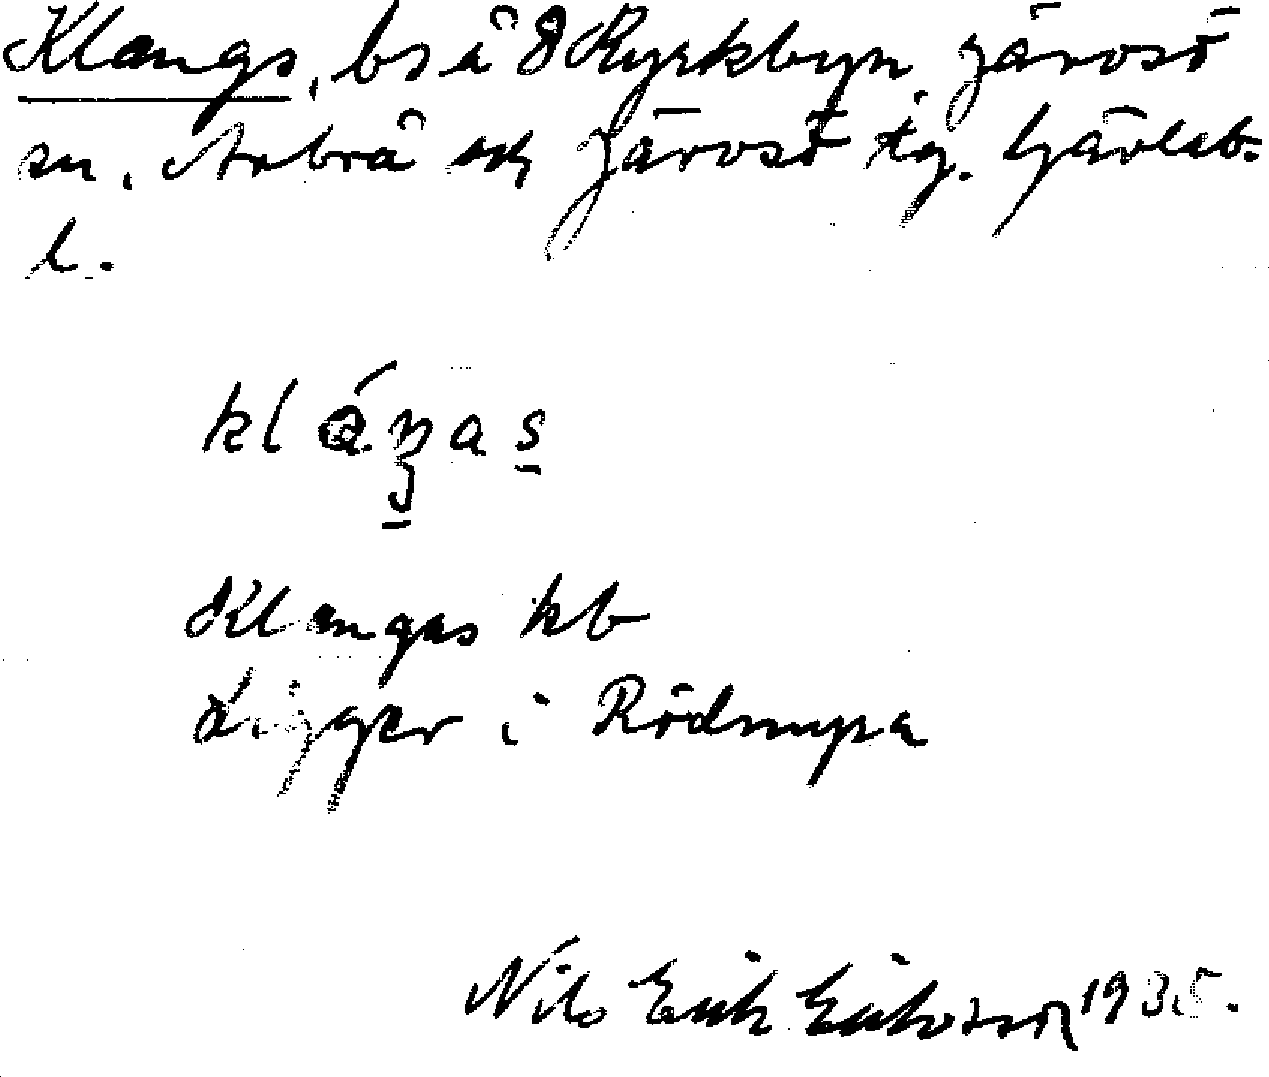 Klangs, bs å 8 Kyrkbyn, Järvsö
sn. Arbrå och Järvsö tg. Gävleb.
l.
Klangas kb
Ligger i Rödmyra
Nils Erik Eriksson 1935.